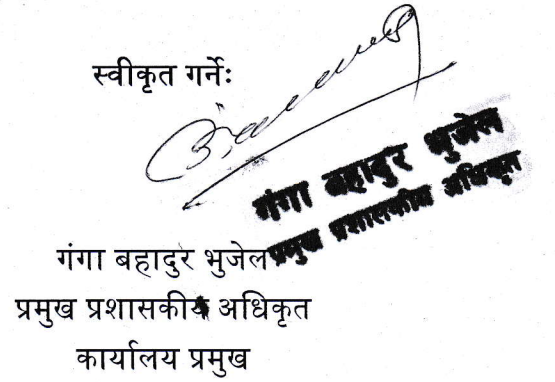 स्वीकृत गर्नेः
गंगा बहादुर भुजेल
प्रमुख प्रशासकीय अधिकृत
गंगा बहादुर भुजेल
प्रमुख प्रशासकीय अधिकृत
कार्यालय प्रमुख